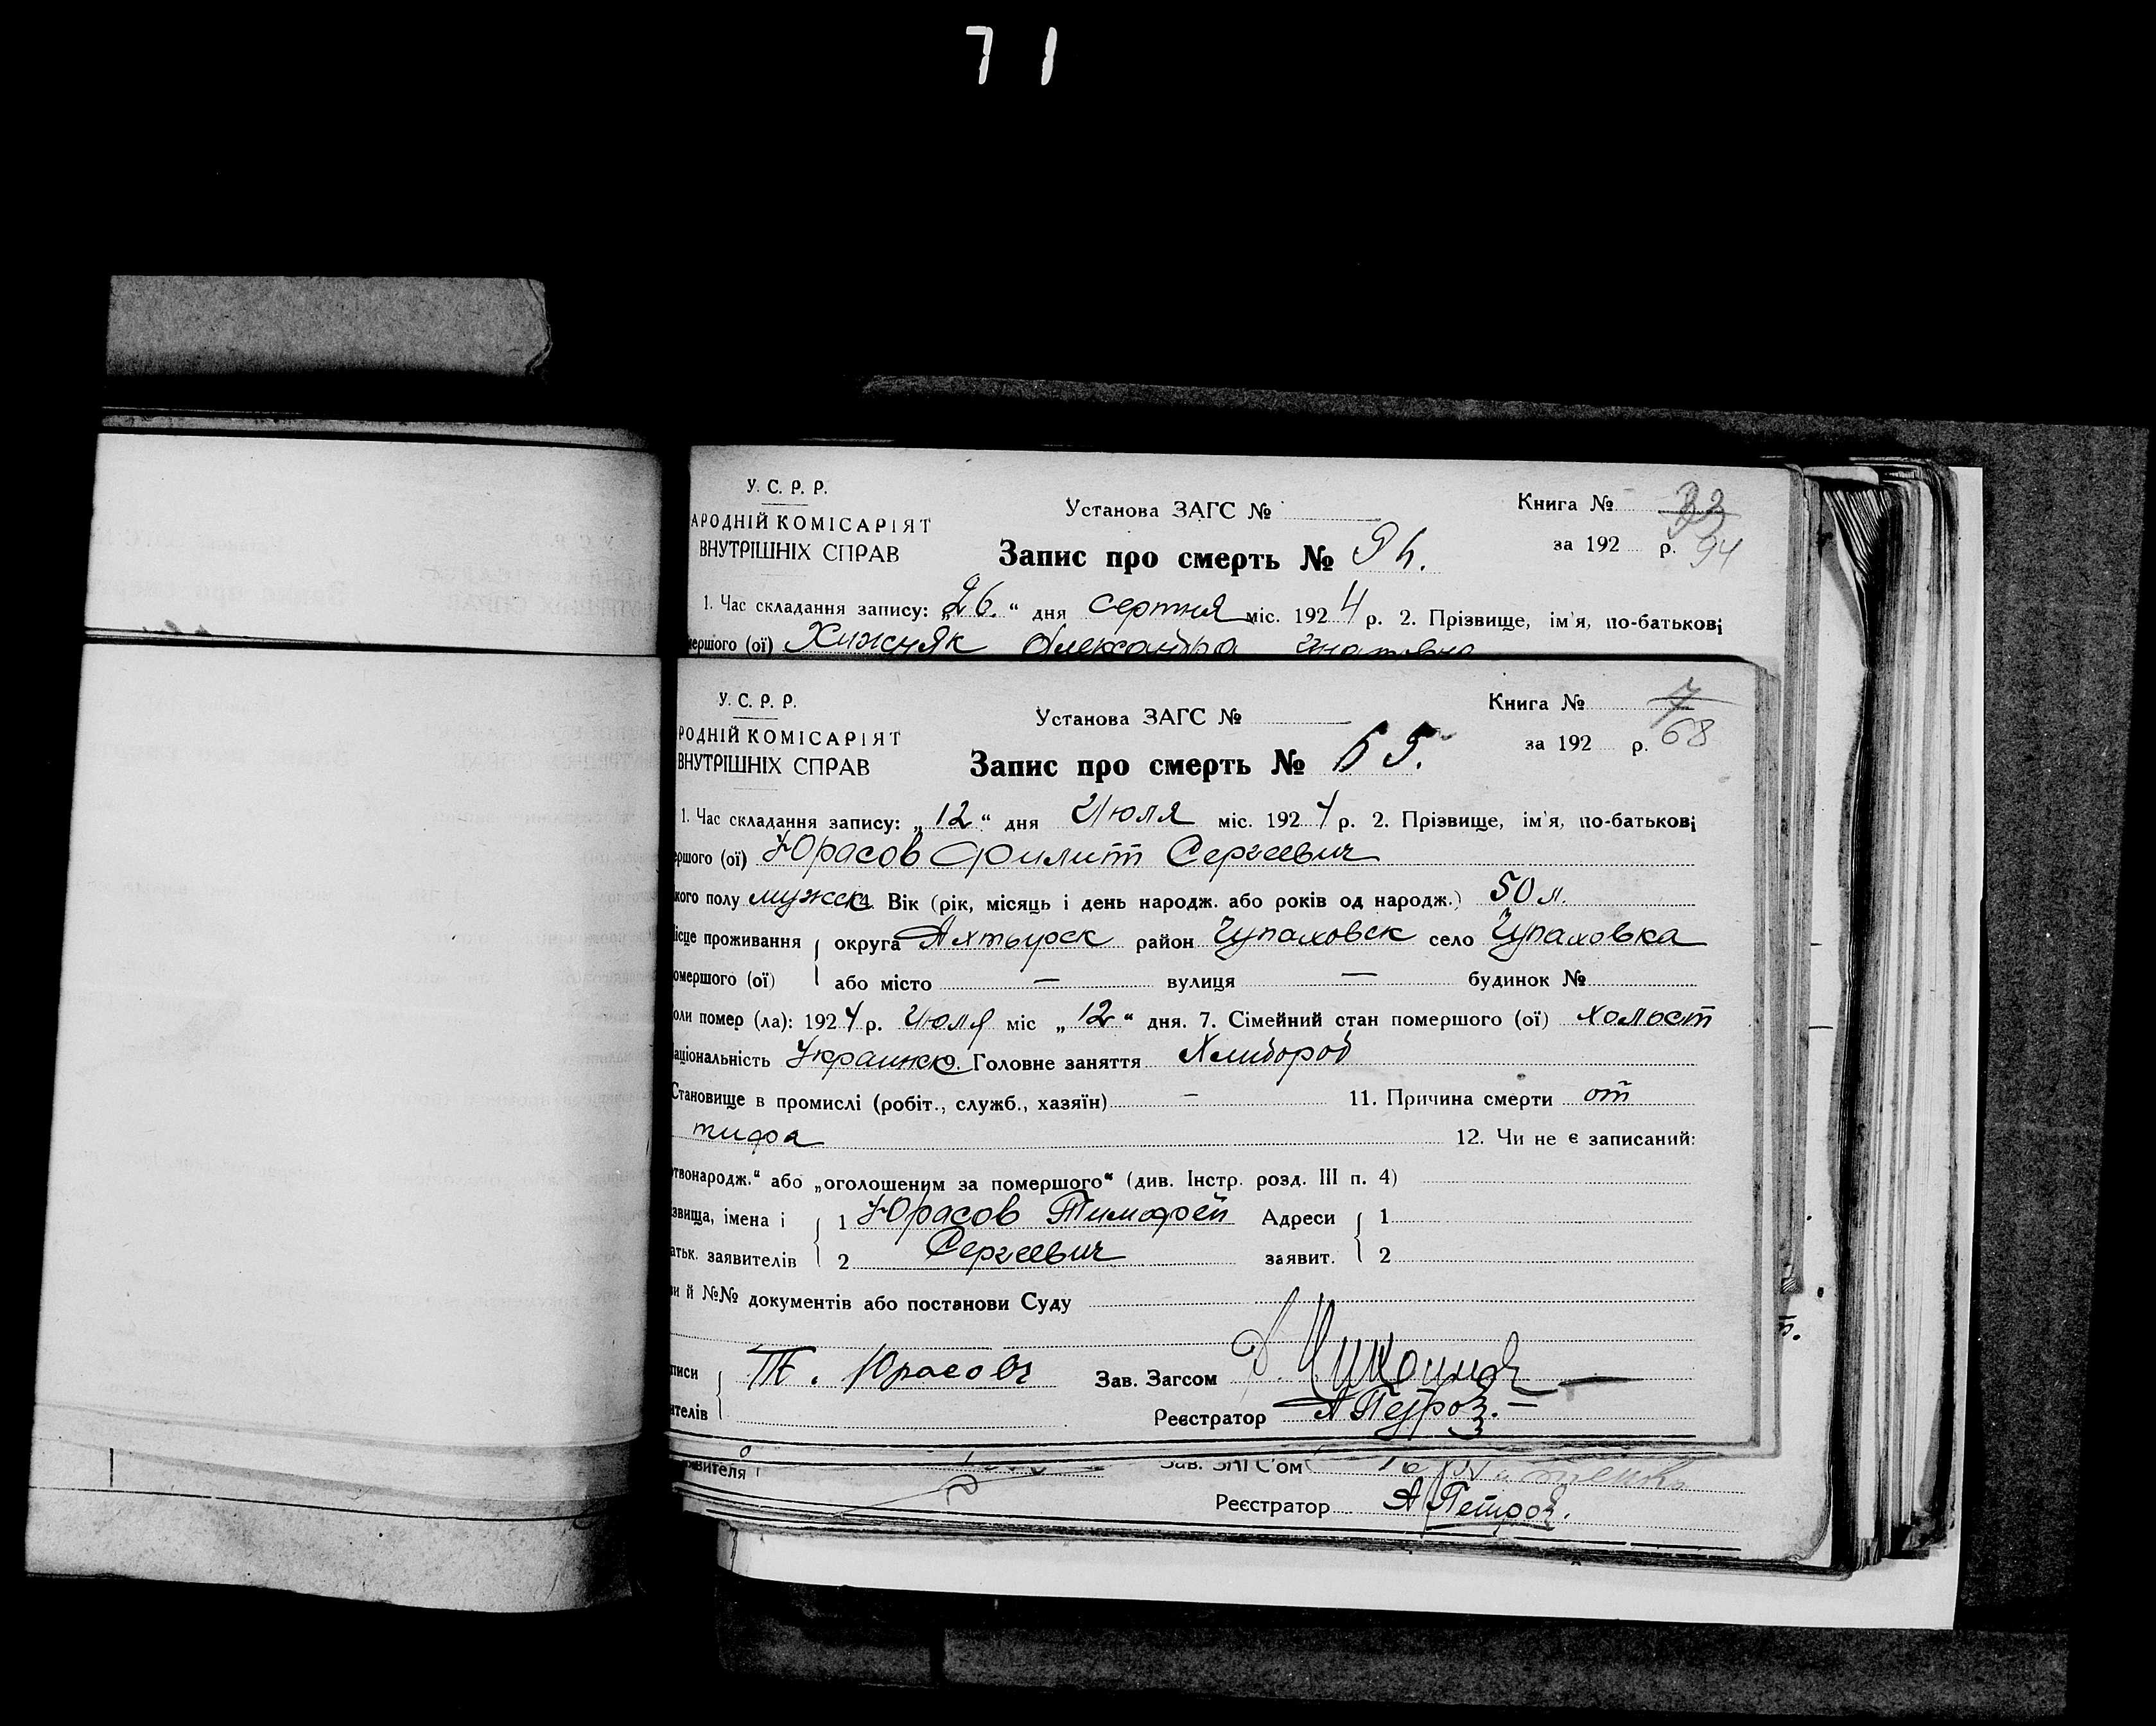 71
У. С. Р. Р.
АРОДНІЙ КОМІСАРІЯТ
ВНУТРІШНІХ СПРАВ
Установа ЗАГС №
Книга № 33
за 192 р. 94
Запис про смерть № 94.
1. Час складання запису: „26.“ дня серпня міс. 1924 р. 2. Прізвище, ім'я, по-батькові
мершого (ої) Хижняк Олександра
У. С. Р. Р.
РОДНІЙ КОМІСАРІЯТ
ВНУТРІШНІХ СПРАВ
Установа ЗАГС №
Книга № 7
за 192 р. 68
Запис про смерть № 65.
1. Час складання запису: „12“ дня Июля міс. 1924 р. 2. Прізвище, ім'я, по-батькові
ершого (ої) Юрасов Филипп Сергеевич
кого полу мужск 4. Вік (рік, місяць і день народж. або років од народж.) 50 л.
ісце проживання округа Ахтырск район Чупаховск село Чупаховка
омершого (ої) або місто — вулиця — будинок №
оли помер (ла): 1924 р. Июля міс „12“ дня. 7. Сімейний стан помершого (ої) холост
аціональність Украинск 9. Головне заняття Хлибороб
Становище в промислі (робіт., служб., хазяїн) — 11. Причина смерти от
тифа 12. Чи не є записаний:
ртвонародж.“ або „оголошеним за помершого“ (див. Інстр. розд. III п. 4)
звища, імена і 1 Юрасов Тимофей Адреси 1
атьк. заявителів 2 Сергеевич заявит. 2
ви й №№ документів або постанови Суду
писи Т. Юрасовъ Зав. Загсом
ителів Реєстратор А Петров.
явителя Зав. ЗАГС'ом
Реєстратор А Петров.